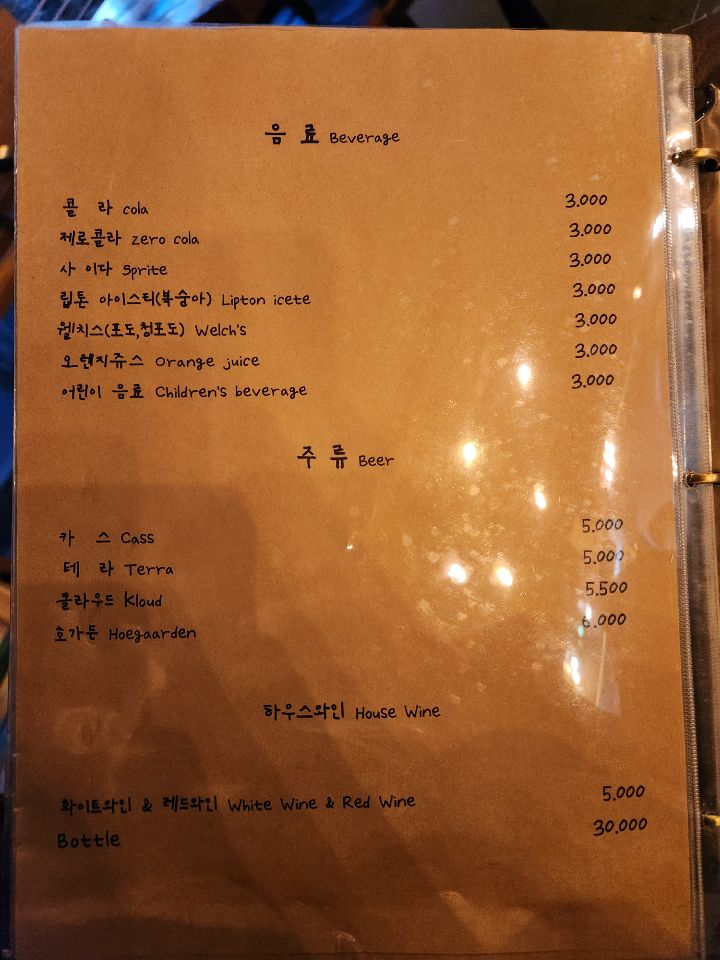 음 료 Beverage
콜 라 cola 3.000
제로콜라 zero cola 3.000
사 이다 Sprite 3.000
립톤 아이스티(복숭아) Lipton icete 3.000
웰치스(포도,청포도) Welch's 3.000
오렌지쥬스 Orange juice 3.000
어린이 음료 Children's beverage 3.000
주 류 Beer
카 스 Cass 5.000
테 라 Terra 5.000
클라우드 Kloud 5.500
호가든 Hoegaarden 6.000
하우스와인 House Wine
화이트와인 & 레드와인 White Wine & Red Wine 5.000
Bottle 30.000